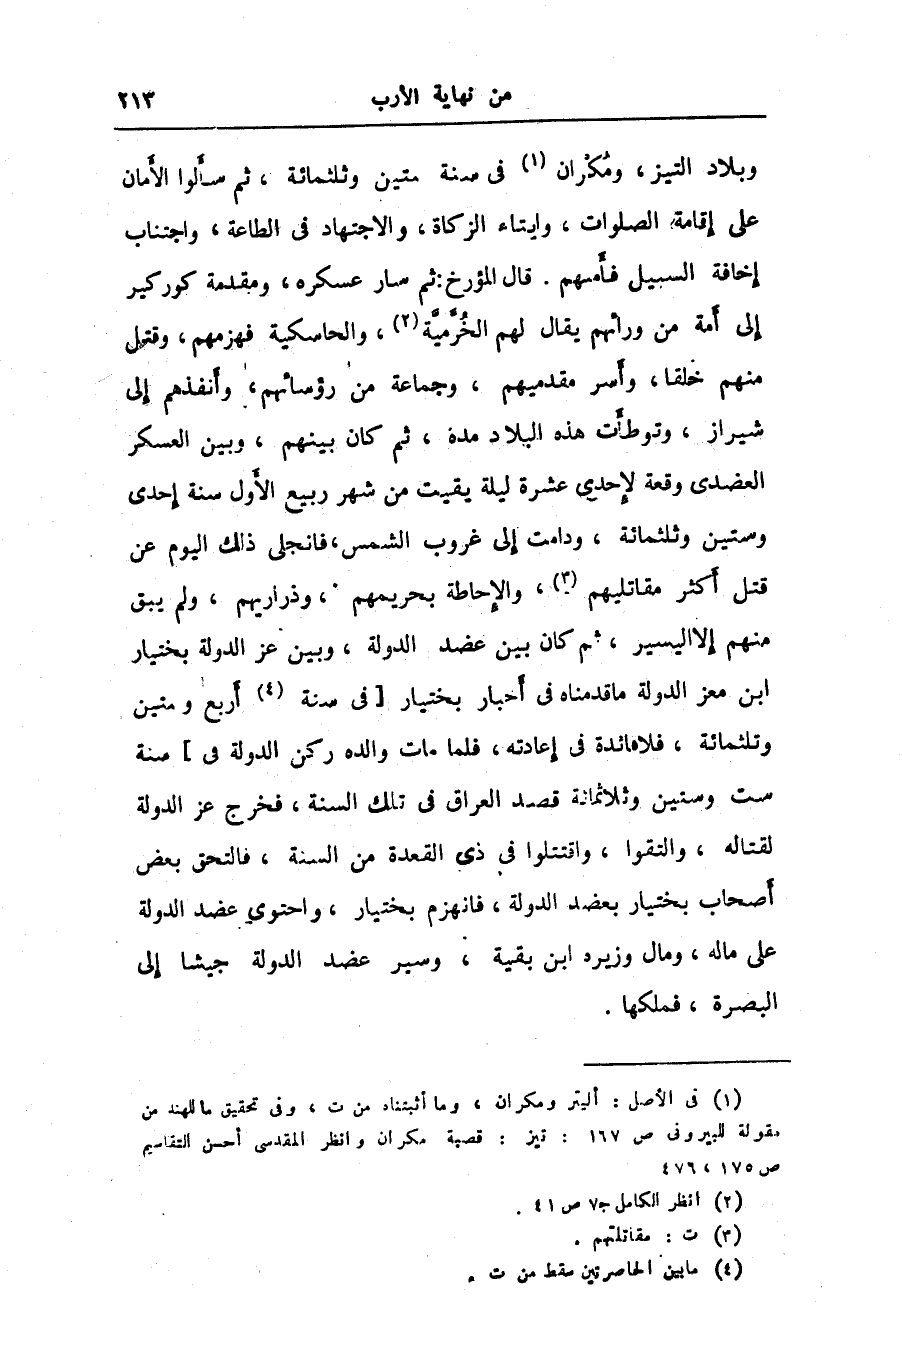 من نهاية الأرب ٢١٣
وبلاد التيز ، ومُكْران (١) فى سنة ستين وثلثمائة ، ثم سألوا الأمان
على إقامة الصلوات ، وايتاء الزكاة ، والاجتهاد فى الطاعة ، واجتناب
إخافة السبيل فأَمنهم . قال المؤرخ : ثم سار عسكره ، ومقدمة كوركير
إلى أمة من ورائهم يقال لهم الخُرَّميَّة (٢) ، والحاسكية فهزمهم ، وقتل
منهم خلقا ، وأسر مقدميهم ، وجماعة من رؤسائهم ، وأنفذهم إلى
شيراز ، وتوطأت هذه البلاد مدة ، ثم كان بينهم ، وبين العسكر
العضدى وقعة لإحدي عشرة ليلة يقيت من شهر ربيع الأول سنة إحدى
وستين وثلثمائة ، ودامت إلى غروب الشمس ، فانجلى ذلك اليوم عن
قتل أكثر مقاتليهم (٣) ، والإحاطة بحريمهم ، وذراريهم ، ولم يبق
منهم إلا اليسير ، ثم كان بين عضد الدولة ، وبين عز الدولة بختيار
ابن معز الدولة ماقدمناه فى أخبار بختيار [ فى سنة (٤) أربع وستين
وثلثمائة ، فلافائدة فى إعادته ، فلما مات والده ركن الدولة فى ] سنة
ست وستين وثلاثمائة قصد العراق فى تلك السنة ، فخرج عز الدولة
لقتاله ، والتقوا ، واقتتلوا في ذي القعدة من السنة ، فالتحق بعض
أصحاب بختيار بعضد الدولة ، فانهزم بختيار ، واحتوي عضد الدولة
على ماله ، ومال وزيره ابن بقية ، وسير عضد الدولة جيشا إلى
البصرة ، فملكها .
(١) فى الأصل : أليتر ومكران ، وما أثبتناه من ت ، وفى تحقيق ماللهند من
مقولة للبيرونى ص ١٦٧ : تيز : قصبة مكران وانظر المقدسى أحسن التقاسيم
ص ١٧٥ ، ٤٧٦
(٢) انظر الكامل ج٧ ص ٤١ .
(٣) ت : مقاتلتهم .
(٤) مابين الحاصرتين سقط من ت .